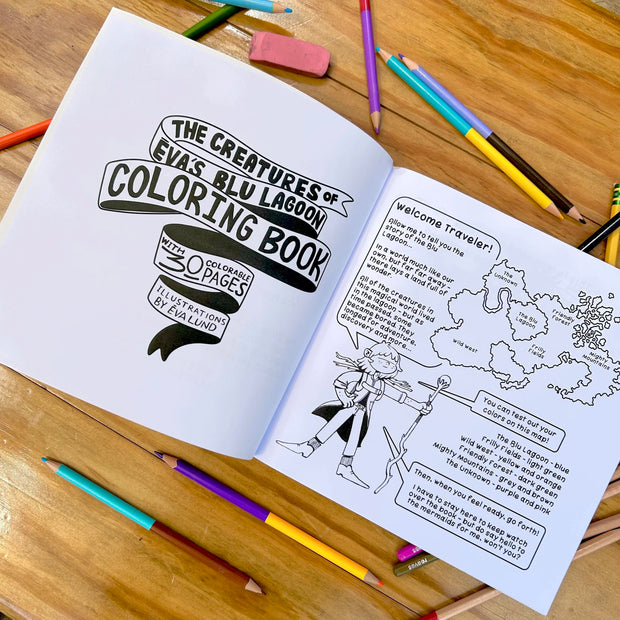 THE CREATURES OF
EVA'S BLU LAGOON
COLORING BOOK
WITH
30 COLORABLE
PAGES
ILLUSTRATIONS
BY EVA LUND
Welcome Traveler!
Allow me to tell you the
story of the Blu
Lagoon...
In a world much like our
own, but far far away,
there lays a land full of
wonder
All of the creatures in
this magical world lived
in the lagoon - but as
time passed, some
became bored. They
longed for adventure,
discovery and more...
The
Unknown
The Blu
Lagoon
Friendly
Forest
Wild West
Frilly
Fields
Mighty
Mountains
You can test out your
colors on this map!
The Blu Lagoon - blue
Frilly Fields - light green
Wild West - yellow and orange
Friendly Forest - dark green
Mighty Mountains - grey and brown
The Unknown - purple and pink
Then, when you feel ready, go forth!
I have to stay here to keep watch
over the book - but do say hello to
the mermaids for me, won't you?